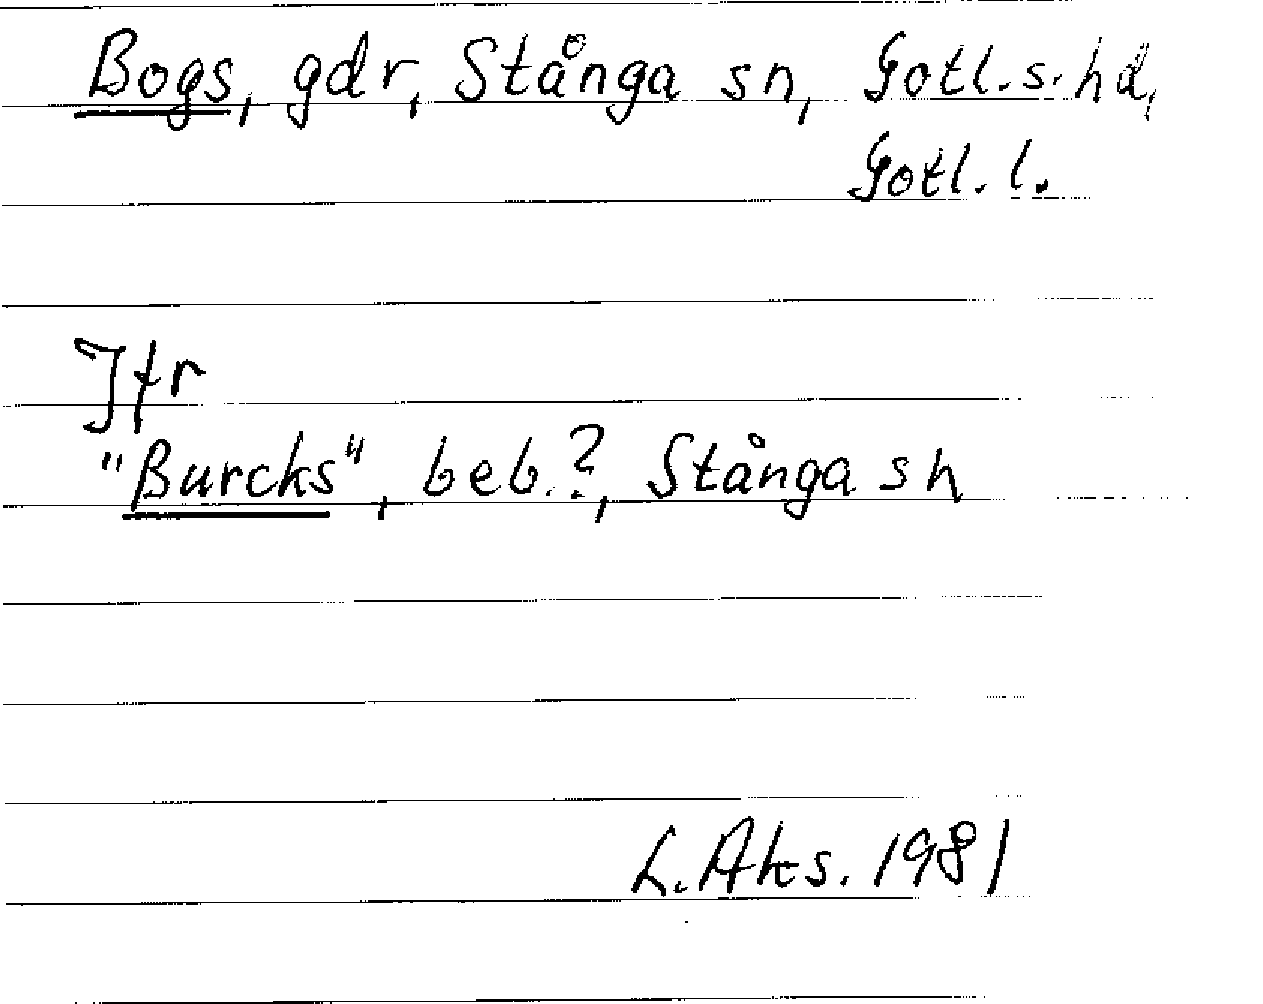 Bogs, gdr, Stånga sn, Gotl. s. hd,
Gotl. l.
Jfr
"Burcks", beb.?, Stånga sn
L. Aks. 1981